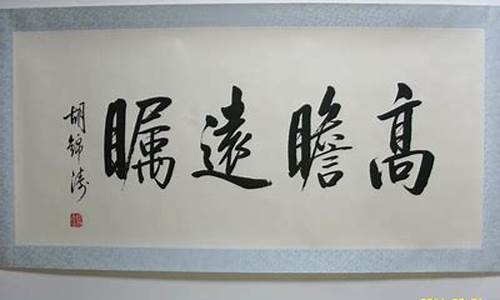 高瞻遠瞩
胡錦涛